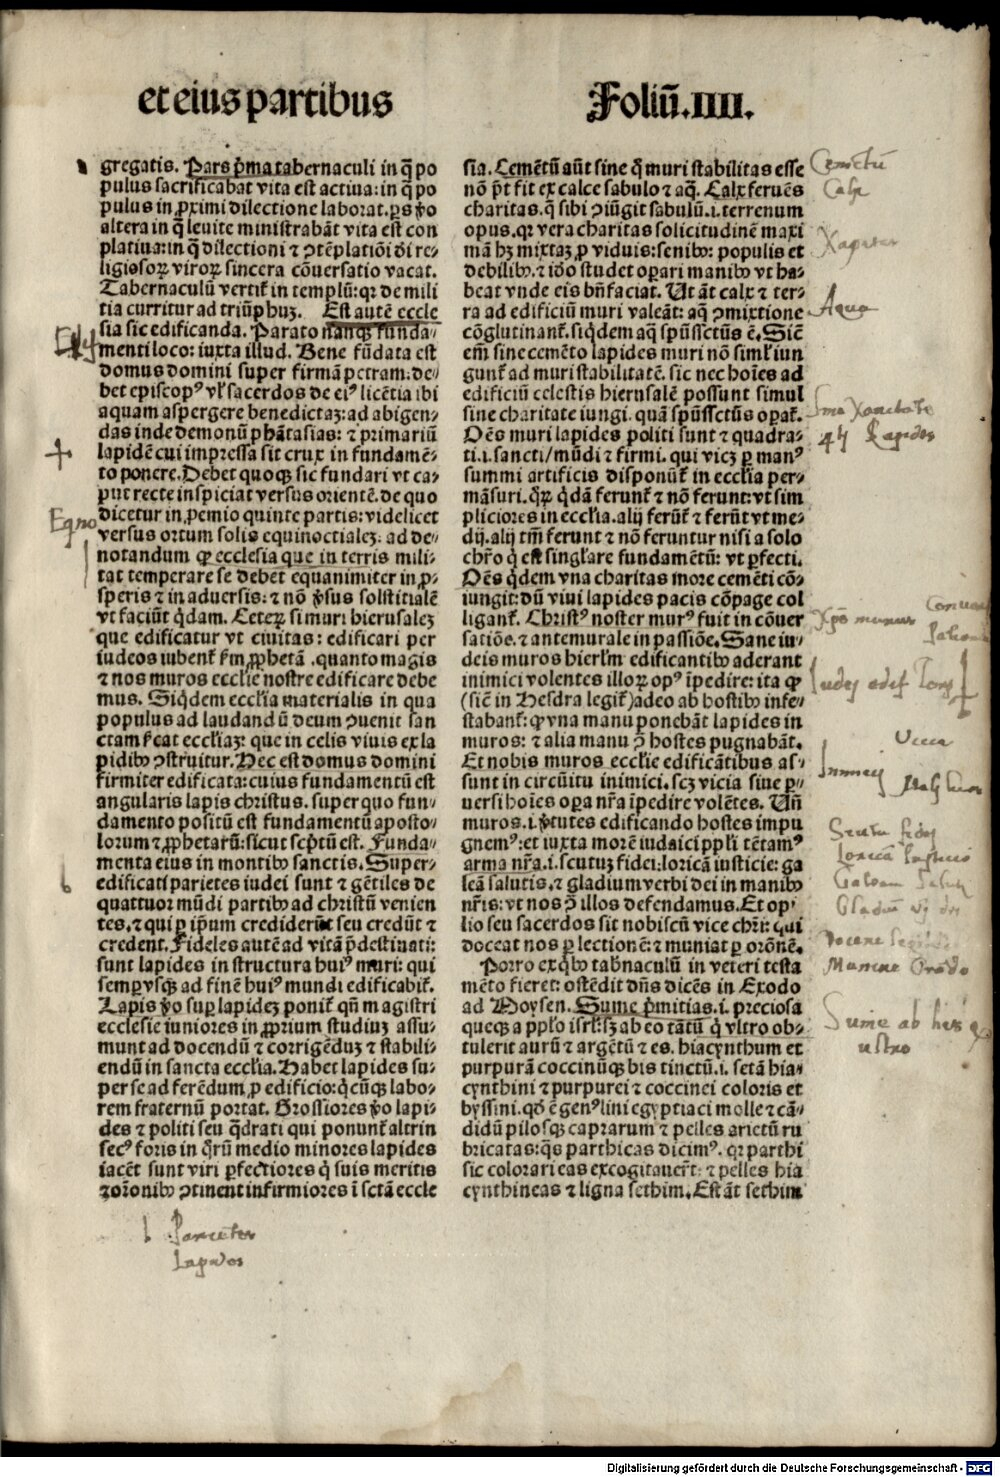 et eius partibus
Foliū.IIII.
gregatis. Pars p̄ma tabernaculi in q̄ po
pulus sacrificabat vita est actiua: in q̄ po
pulus in ꝓximi dilectione laborat. ꝑs ỽo
altera in q̄ leuite ministrabāt vita est con
platiua: in q̄ dilectioni ⁊ ↄtēplatiōi d̄i re⸗
ligiosoꝝ viroꝝ sincera cōuersatio vacat.
Tabernaculū vertiť in templū: qꝛ de mili
tia curritur ad triūphuꝫ. Est autē eccle
sia sic edificanda. Parato nanqꝫ funda⸗
menti loco: iuxta illud. Bene fūdata est
domus domini super firmā petram: de⸗
bet episcopꝰ vľ sacerdos de eiꝰ licētia ibi
aquam aspergere benedictaꝫ: ad abigen⸗
das inde demonū phātasias: ⁊ primariū
lapidē cui impressa sit crux in fundamē⸗
to ponere. Debet quoqꝫ sic fundari vt ca⸗
put recte inspiciat versus orientē. de quo
dicetur in ꝓemio quinte partis: videlicet
versus ortum solis equinoctialeꝫ: ad de⸗
notandum ꝙ ecclesia que in terris mili⸗
tat temperare se debet equanimiter in ꝓ⸗
speris ⁊ in aduersis: ⁊ nō ỽsus solstitialē
vt faciūt q̇dam. Ceteꝝ si muri hierusaleꝫ
que edificatur vt ciuitas: edificari per
iudeos iubenť ẜm ꝓphetā. quanto magis
⁊ nos muros ecclie nostre edificare debe
mus. Siq̇dem ecclia materialis in qua
populus ad laudandū deum ↄuenit san
ctam ẜcat eccliaꝫ: que in celis viuis ex la
pidibꝰ ↄstruitur. Hec est domus domini
firmiter edificata: cuius fundamentū est
angularis lapis christus. super quo fun⸗
damento positū est fundamentū aposto⸗
lorum ⁊ ꝓphetarū: sicut scp̄tū est. Funda⸗
menta eius in montibꝰ sanctis. Super⸗
edificati parietes iudei sunt ⁊ gētiles de
quattuor mūdi partibꝰ ad christū venien
tes. ⁊ qui ꝑ ip̄um crediderūt seu credūt ⁊
credent. Fideles autē ad vitā p̄destinati:
sunt lapides in structura huiꝰ muri: qui
semꝑ vsqꝫ ad finē huiꝰ mundi edificabiť.
Lapis ỽo suꝑ lapideꝫ poniť qn̄ magistri
ecclesie iuniores in ꝓprium studiuꝫ assu⸗
munt ad docendū ⁊ corrigēduꝫ ⁊ stabili⸗
endū in sancta ecclia. Habet lapides su⸗
per se ad ferēdum ꝓ edificio: q̇cūqꝫ labo⸗
rem fraternū portat. Grossiores ỽo lapi⸗
des ⁊ politi seu q̄drati qui ponunť altrin
secꝰ foris in q̇rū medio minores lapides
iacēt sunt viri ꝑfectiores q̇ suis meritis
⁊ orōnibꝰ ↄtinent infirmiores ī sctā eccle
sia. Cemētū aūt sine q̇ muri stabilitas esse
nō p̄t fit ex calce sabulo ⁊ aq̄. Calx feruēs
charitas. q̄ sibi ↄiūgit sabulū .i. terrenum
opus. qꝛ vera charitas solicitudinē maxi
mā hꝫ mixtaꝫ ꝓ viduis: senibꝰ: populis et
debilibꝰ. ⁊ iō studet oꝑari manibꝰ vt ha⸗
beat vnde eis bn̄ faciat. Ut āt calx ⁊ ter⸗
ra ad edificiū muri valeāt: aq̄ ↄmixtione
cōglutinanť. siq̇dem aq̄ spūssctūs ē. Sicē
em̄ sine cemēto lapides muri nō simľ iun
gunť ad muri stabilitatē. sic nec hoīes ad
edificiū celestis hierusalē possunt simul
sine charitate iungi. quā spūssctūs oꝑať.
Oēs muri lapides politi sunt ⁊ quadra⸗
ti .i. sancti/ mūdi ⁊ firmi. qui vicꝫ ꝑ manꝰ
summi artificis disponūť in ecclia per⸗
māsuri. q̇ꝝ q̇dā ferunť ⁊ nō ferunt: vt sim
pliciores in ecclia. alij ferūť ⁊ ferūt vt me⸗
dij. alij tm̄ ferunt ⁊ nō feruntur nisi a solo
chr̄o q̇ est singľare fundamētū: vt ꝑfecti.
Oēs q̇dem vna charitas more cemēti cō⸗
iungit: dū viui lapides pacis cōpage col
liganť. Christꝰ noster murꝰ fuit in cōuer
satiōe. ⁊ antemurale in passiōe. Sane iu⸗
deis muros hierľm edificantibꝰ aderant
inimici volentes illoꝝ opꝰ īpedire: ita ꝙ
(sicē in Hesdra legiť) adeo ab hostibꝰ infe⸗
stabanť: ꝙ vna manu ponebāt lapides in
muros: ⁊ alia manu ↄ̄ hostes pugnabāt.
Et nobis muros ecclie edificātibus as⸗
sunt in circūitu inimici. scꝫ vicia siue ꝑ⸗
uersi hoīes oꝑa nr̄a īpedire volētes. Uñ
muros .i. ỽtutes edificando hostes impu
gnemꝰ: et iuxta morē iudaici ppl̄i tētamꝰ
arma nr̄a .i. scutuꝫ fidei: loricā iusticie: ga
leā salutis. ⁊ gladium verbi dei in manibꝰ
nr̄is: vt nos ↄ̄ illos defendamus. Et op⸗
lio seu sacerdos sit nobiscū vice chr̄i: qui
doceat nos ꝑ lectionē: ⁊ muniat ꝑ orōnē.
Porro ex q̇bꝰ tab̄naculū in veteri testa
mēto fieret: ostēdit dn̄s dicēs in Exodo
ad Moysen. Sume p̄mitias .i. preciosa
queqꝫ a ppl̄o isrľ. sꝫ ab eo tātū q̇ vltro ob⸗
tulerit aurū ⁊ argētū ⁊ es. hiacynthum et
purpurā coccinūqꝫ bis tinctū .i. setā hia⸗
cynthini ⁊ purpurei ⁊ coccinei coloris et
byssini. qd̄ ē genꝰ lini egyptiaci molle ⁊ cā⸗
didū pilosqꝫ caprarum ⁊ pelles arietū ru
bricatas: q̄s parthicas dicimꝰ. qꝛ parthi
sic colorari eas excogitauerūt: ⁊ pelles hia
cynthineas ⁊ ligna sethim. Est āt sethim
Calx
Aqua
Lapides
Parietes
Lapides
Digitalisierung gefördert durch die Deutsche Forschungsgemeinschaft - DFG